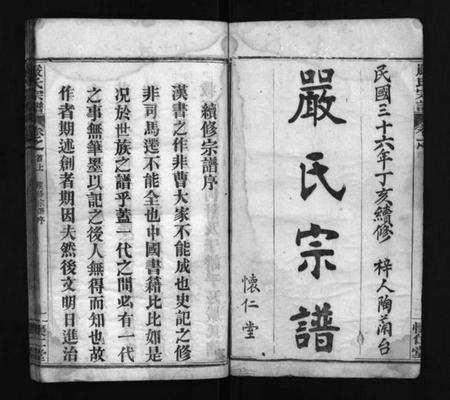 民國三十六年丁亥續修
梓人陶蘭台
嚴氏宗譜
懷仁堂
續修宗譜序
漢書之作非曹大家不能成也史記之修
非司馬遷不能全也中國書籍比比如是
况於世族之譜乎蓋一代之間必有一代
之事無筆墨以記之後人無得而知也故
作者期述創者期因夫然後文明日進治
嚴氏宗譜